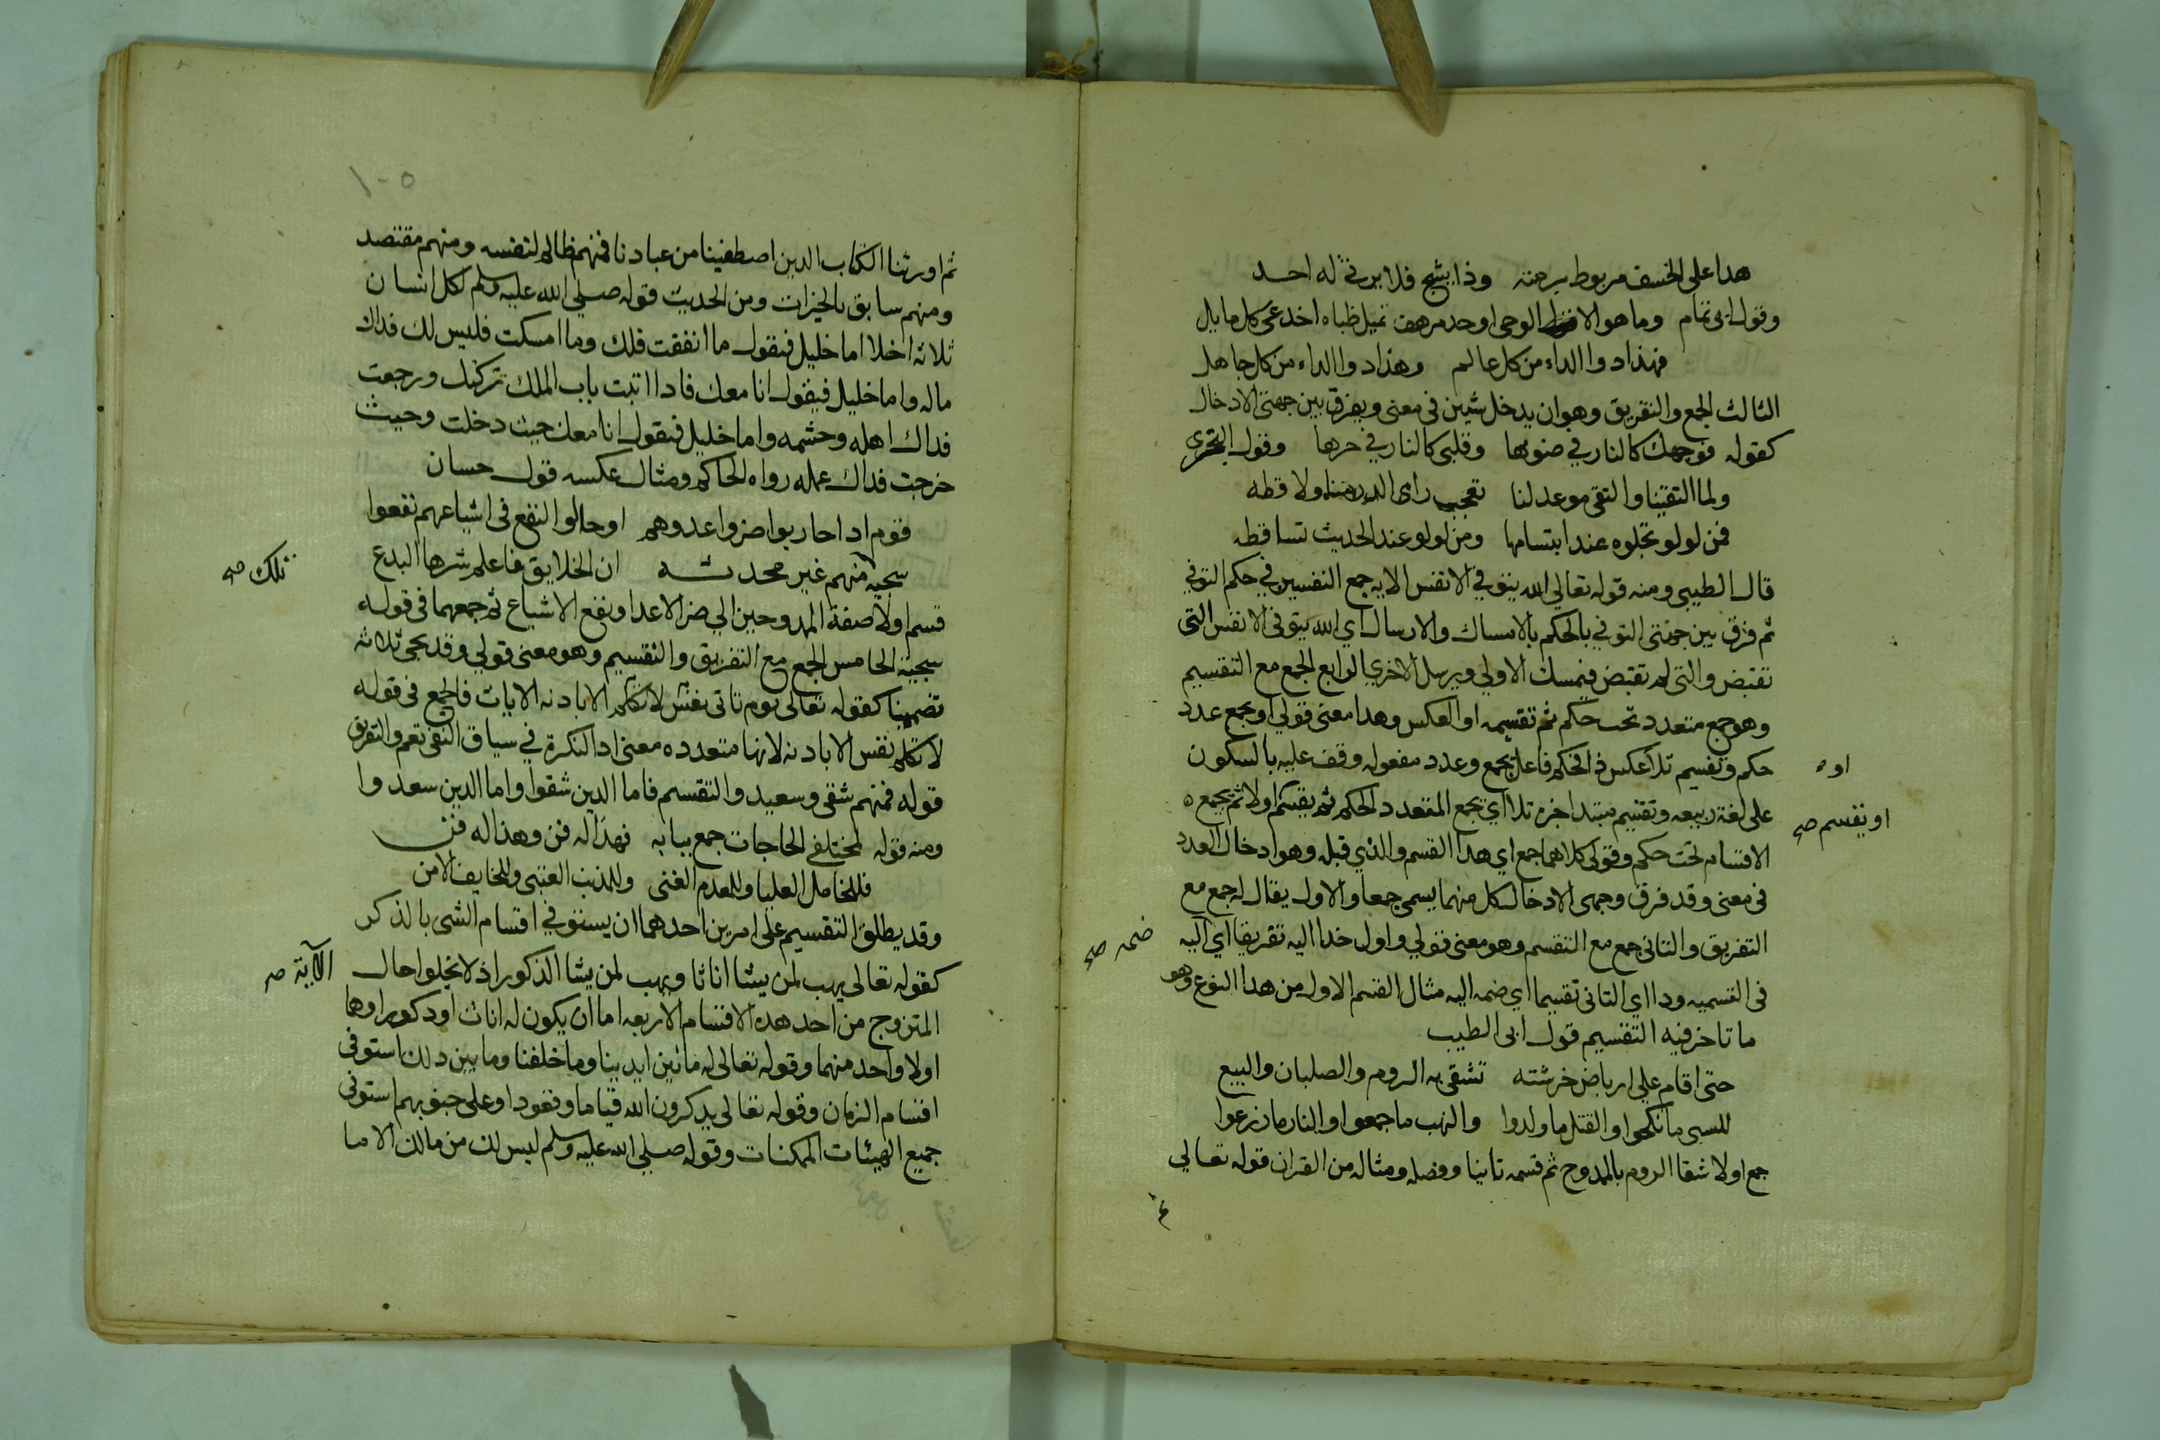 هدا على الخسف مربوط برمته وذا يشج فلا يرثي له احد
وقول ابى تمام وما هو الا الوحي او حد مرهف تميل ظباه اخدعى كل مايل
فهذا دوا الداء من كل عالم وهذا دوا الداء من كل جاهل
الثالث الجمع والتفريق وهو ان يدخل شيين فى معنى ويفرق بين جهتي الادخال
كقوله فوجهك كالنار في ضوئها وقلبى كالنار في حرها وقول البحترى
ولما التقينا والتقى موعد لنا تعجب راى الدر منا ولاقطه
فمن لولو تجلوه عند ابتسامها ومن لولو عند الحديث تساقطه
قال الطيبى ومنه قوله تعالى الله يتوفي الانفس الايه جمع النفسين في حكم التوفي
ثم فرق بين جهتى التوفي بالحكم بالامساك والارسال اي الله يتوفى الانفس التى
تقبض والتى لم تقبض فيمسك الاولي ويرسل الاخري الرابع الجمع مع التقسيم
وهو جمع متعدد تحت حكم ثم تقسيمه او العكس وهدا معنى قولي او بجمع عدد
حكم وتقسيم تلا عكس فالحكم فاعل يجمع وعدد مفعوله وقف عليه بالسكون
او ه
على لغة ربيعه وتقسيم مبتدا خبره تلا اي يجمع المتعدد الحكم ثم يقسم اولا ثم يجمع ه
او يقسم صح
الاقسام تحت حكم وقولى كلاهما جمع اي هدا القسم والذي قبله وهو ادخال العدد
فى معنى وقد فرق وجهى الادخال كل منهما يسمى جمعا والاول يقال له جمع مع
التفريق والثانى جمع مع التقسم وهو معنى قولي واول خدا اليه تفريقا اي اليه
ضمه صح
فى القسميه ودا اي الثانى تقسيما اي ضمه اليه مثال القسم الاول من هدا النوع وهو
ما تاخر فيه التقسيم قول ابى الطيب
حتى اقام على ارباض خرشنه تشقى به الروم والصلبان والبيع
للسبى ما نكحوا والقتل ما ولدوا والنهب ما جمعوا والنار ما زرعوا
جمع اولا شقا الروم بالممدوح ثم قسمه ثانيا وفصله ومثاله من القران قوله تعالي
ثم
١٠٥
ثم اورثنا الكتاب الدين اصطفينا من عبادنا فمنهم ظالم لنفسه ومنهم مقتصد
ومنهم سابق بالخيرات ومن الحديث قوله صلي الله عليه وسلم لكل انسان
ثلاثه اخلا اما خليل فيقول ما انفقت فلك وما امسكت فليس لك فداك
ماله واما خليل فيقول انا معك فادا اتيت باب الملك تركتك ورجعت
فداك اهله وحشمه واما خليل فيقول انا معك حيث دخلت وحيث
خرجت فداك عمله رواه الحاكم ومثال عكسه قول حسان
قوم ادا حاربوا ضروا عدوهم او حاولوا النفع فى اشياعهم نفعوا
سجيه منهم غير محدثه ان الخلايق فاعلم شرها البدع
تلك صح
قسم اولا صفة الممدوحين الي ضر الاعدا ونفع الاشياع ثم جمعهما فى قوله
سجية الخامس الجمع مع التفريق والتقسيم وهو معنى قولي وقد يجي ثلاثه
تضمينا كقوله تعالى يوم تاتى نفس لا تكلم الا بادنه الايات فالجمع فى قوله
لا تكلم نفس الا بادنه لانها متعدده معنى اد النكرة في سياق النفى تعم والتفريق
قوله فمنهم شقى وسعيد والتقسم فاما الدين شقوا واما الدين سعدوا
ومنه قوله لمختلفى الحاجات جمع ببابه فهذا له فن وهذا له فن
فللخامل العليا وللمعدم الغنى وللمذنب العتبى وللخايف الامن
وقد يطلق التقسيم على امرين احدهما ان يستوفي اقسام الشى بالذكر
كقوله تعالى يهب لمن يشا اناثا ويهب لمن يشا الذكور اذ لا يخلوا حال
الآية صح
المتزوج من احد هده الاقسام الاربعه اما ان يكون له اناث او دكور او هما
اولا واحد منهما وقوله تعالى له ما بين ايدينا وما خلفنا وما بين دلك استوفى
اقسام الزمان وقوله تعالى يدكرون الله قياما وقعودا وعلى جنوبهم استوفى
جميع الهيئات الممكنات وقوله صلي الله عليه وسلم ليس لك من مالك الا ما